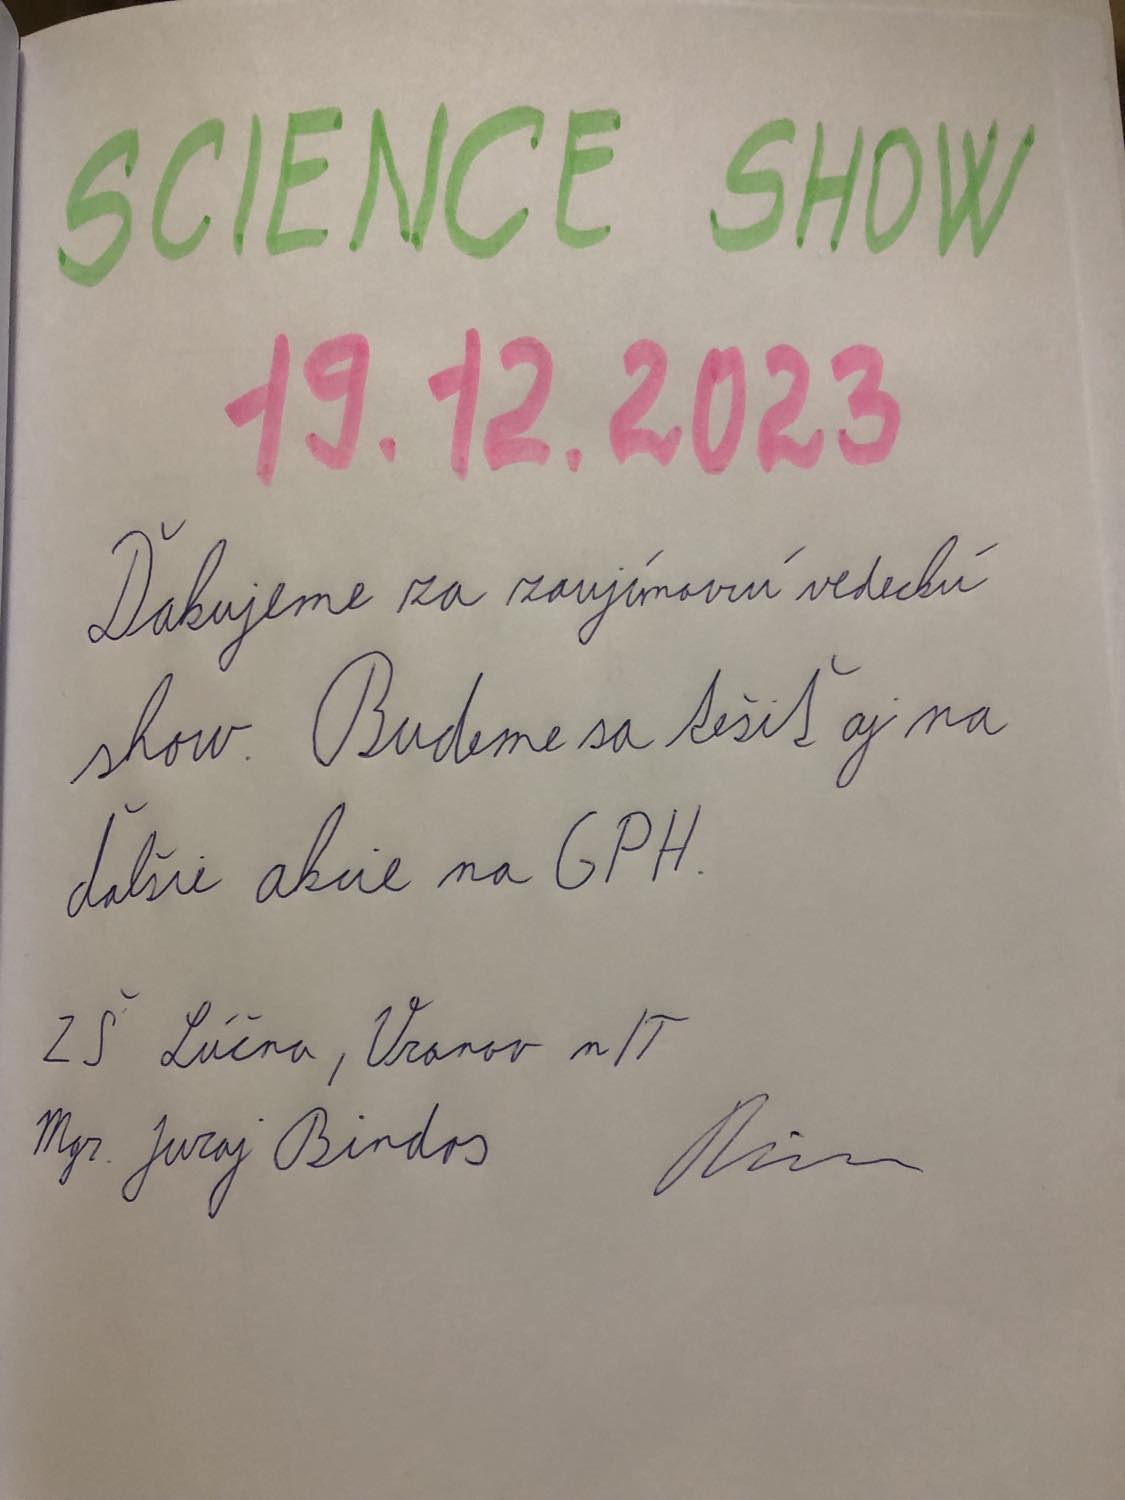 SCIENCE SHOW
19.12.2023
Ďakujeme za zaujímavú vedeckú
show. Budeme sa tešiť aj na
ďalšie akcie na GPH.
ZŠ Lúčna, Vranov n/T
Mgr. Juraj Bindas